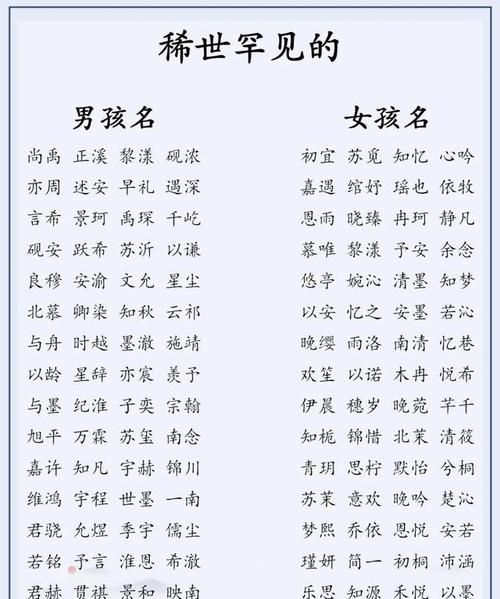 稀世罕见的
男孩名 女孩名
尚禹 正溪 黎漾 砚浓 初宜 苏觅 知忆 心吟
亦周 述安 早礼 遇深 嘉遇 绾妤 瑶也 依牧
言希 景珂 禹琛 千屹 恩雨 晓臻 冉珂 静凡
砚安 跃希 苏沂 以谦 慕唯 黎漾 予安 余念
良穆 安渝 文允 星尘 悠亭 婉沁 清墨 知梦
北慕 卿染 知秋 云祁 以安 忆之 安墨 若沁
与舟 时越 墨澈 施靖 晚缨 雨洛 南清 忆巷
以龄 星辞 亦宸 羡予 欢笙 以诺 木冉 悦希
与墨 纪淮 子奕 宗翰 伊晨 穗岁 晚菀 芊千
旭平 万霖 苏玺 南念 知栀 锦惜 北茉 清筱
嘉许 知凡 宇赫 锦川 青玥 思柠 默怡 兮桐
维鸿 宇程 世墨 一南 苏茉 意欢 晚吟 楚沁
君骁 允煜 季宇 儒尘 梦熙 乔依 恩悦 安若
若铭 予言 淮恩 希澈 瑾妍 简一 初桐 沛涵
君赫 贯祺 景和 映南 乐思 知源 禾悦 以墨